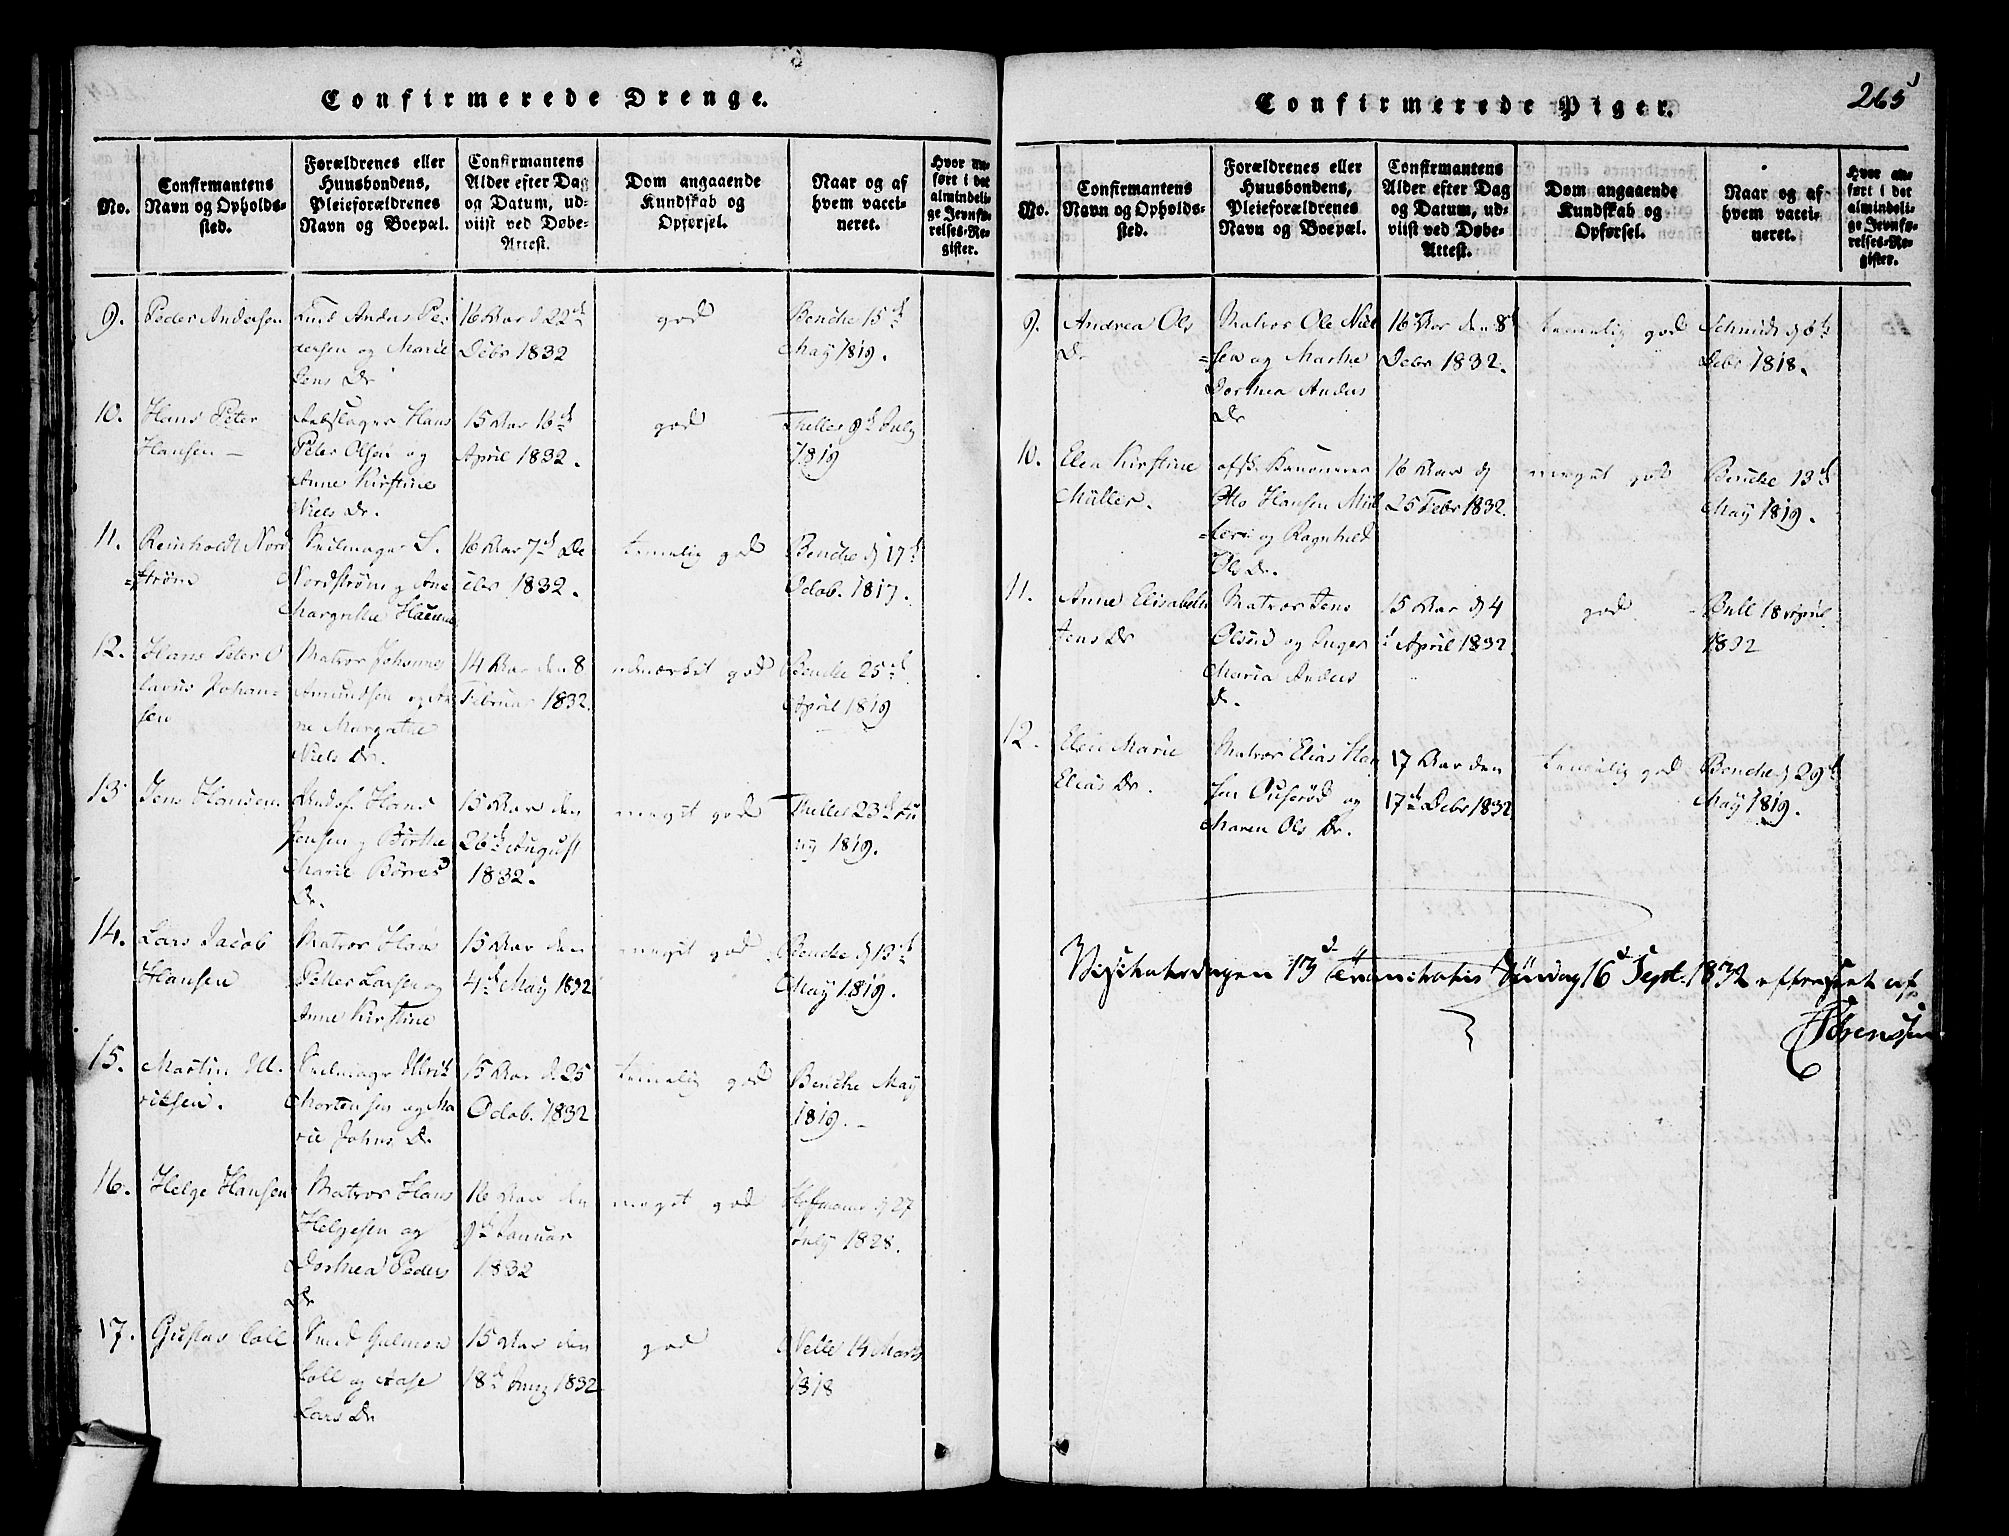 Confirmerede Drenge.
No.
Confirmantens
Navn og Opholds-
sted.
Forældrenes eller
Huusbondens,
Pleieforældrenes
Navn og Boepæl.
Confirmantens
Alder efter Dag
og Datum, ud-
viist ved Døbe-
Attest.
Dom angaaende
Kundskab og
Opførsel.
Naar og af
hvem vacci-
neret.
Hvor an-
ført i det
almindeli-
ge Jevnfø-
relses-Re-
gister.
9.
Peder Andersen
Anders Pe-
dersen og Marie
Lens Dr
16 Aar d 22de
Debr 1832
god
Benche 15de
May 1819.
10.
Hans Peter
Hansen –
Hans
Peter Olsen og
Anne Kirstine
Niels Dr.
15 Aar 16de
April 1832.
god
Theller 9de July
1819
11.
Reinholdt Nord
=strøm
Seilmager S.
Nordstrøm og Ane
Margrethe
16 Aar 7de De
cbr 1832.
temelig god
Benche d 17de
Octob. 1817.
12.
Hans Peter O
lavus Johan-
sen
Matros Johannes
Amundsen og An
ne Margrethe
Niels Dr.
14 Aar den 8
Februar 1832.
udmærket god
Benche 25de
April 1819
13
Jens Hansen
Hans
Jensen og Birthe
Marie Børres
Dr.
15 Aar den
26de August
1832.
meget god
Theller 23de Ju
ny 1819.
14.
Lars Jacob
Hansen
Matros Hans
Petter Larsen og
Anne Kirstine
15 Aar den
4de May 1832
meget god
Benche d 13de
May 1819.
15.
Martin Ul-
riksen.
Seilmager Ulrik
Mortensen og Ma
rie Johns Dr.
15 Aar d. 25
Octob. 1832
temelig god
Benche May
1819. –
16.
Helge Hansen
Matros Hans
Helgesen og
Dorthea Peders
Dr
16 Aar den
9de Januar
1832
meget god
Hoffmann d 27
July 1828.
17.
Gustav Coll
Smed
Coll og Aase
Lars Dr
15 Aar den
18de 1832
god
Nelle 14 Marts
1818
Confirmerede Piger.
265
No.
Confirmantens
Navn og Opholds-
sted.
Forældrenes eller
Huusbondens,
Pleieforældrenes
Navn og Boepæl.
Confirmantens
Alder efter Dag
og Datum, ud-
viist ved Døbe-
Attest.
Dom angaaende
Kundskab og
Opførsel.
Naar og af
hvem vacci-
neret.
Hvor an-
ført i det
almindeli-
ge Jevnfø-
relses-Re-
gister.
9.
Andrea Ols
Dr
Matros Ole Niel
=sen og Marthe
Dorthea Anders
Dr
16 Aar den 8de
Debr 1832.
temmelig god
Schmidt d 6te
Debr 1818.
10.
Elen Kirstine
Müller.
afsk. Kanoneer
Otto Hansen Mül
=ler og Ragnhild
Ols Dr.
16 Aar d
25 Febr 1832.
meget god
Benche 13de
May 1819.
11.
Anne Elisabeth
Jens Dr
Matros Jens
Olsen og Inger
Maria Anders
Dr.
15 Aar d 4
April 1832
god
Bull 18 April
1832
12.
Elen Marie
Elias Dr.
Matros Elias Han
sen og
Maren Ols Dr.
17 Aar den
17de Debr 1832
temelig god
Benche d 29de
May 1819.
Visitatsdagen 13d Trinitatis Søndag 16d Sept. 1832 efterseet af
Sørenssen